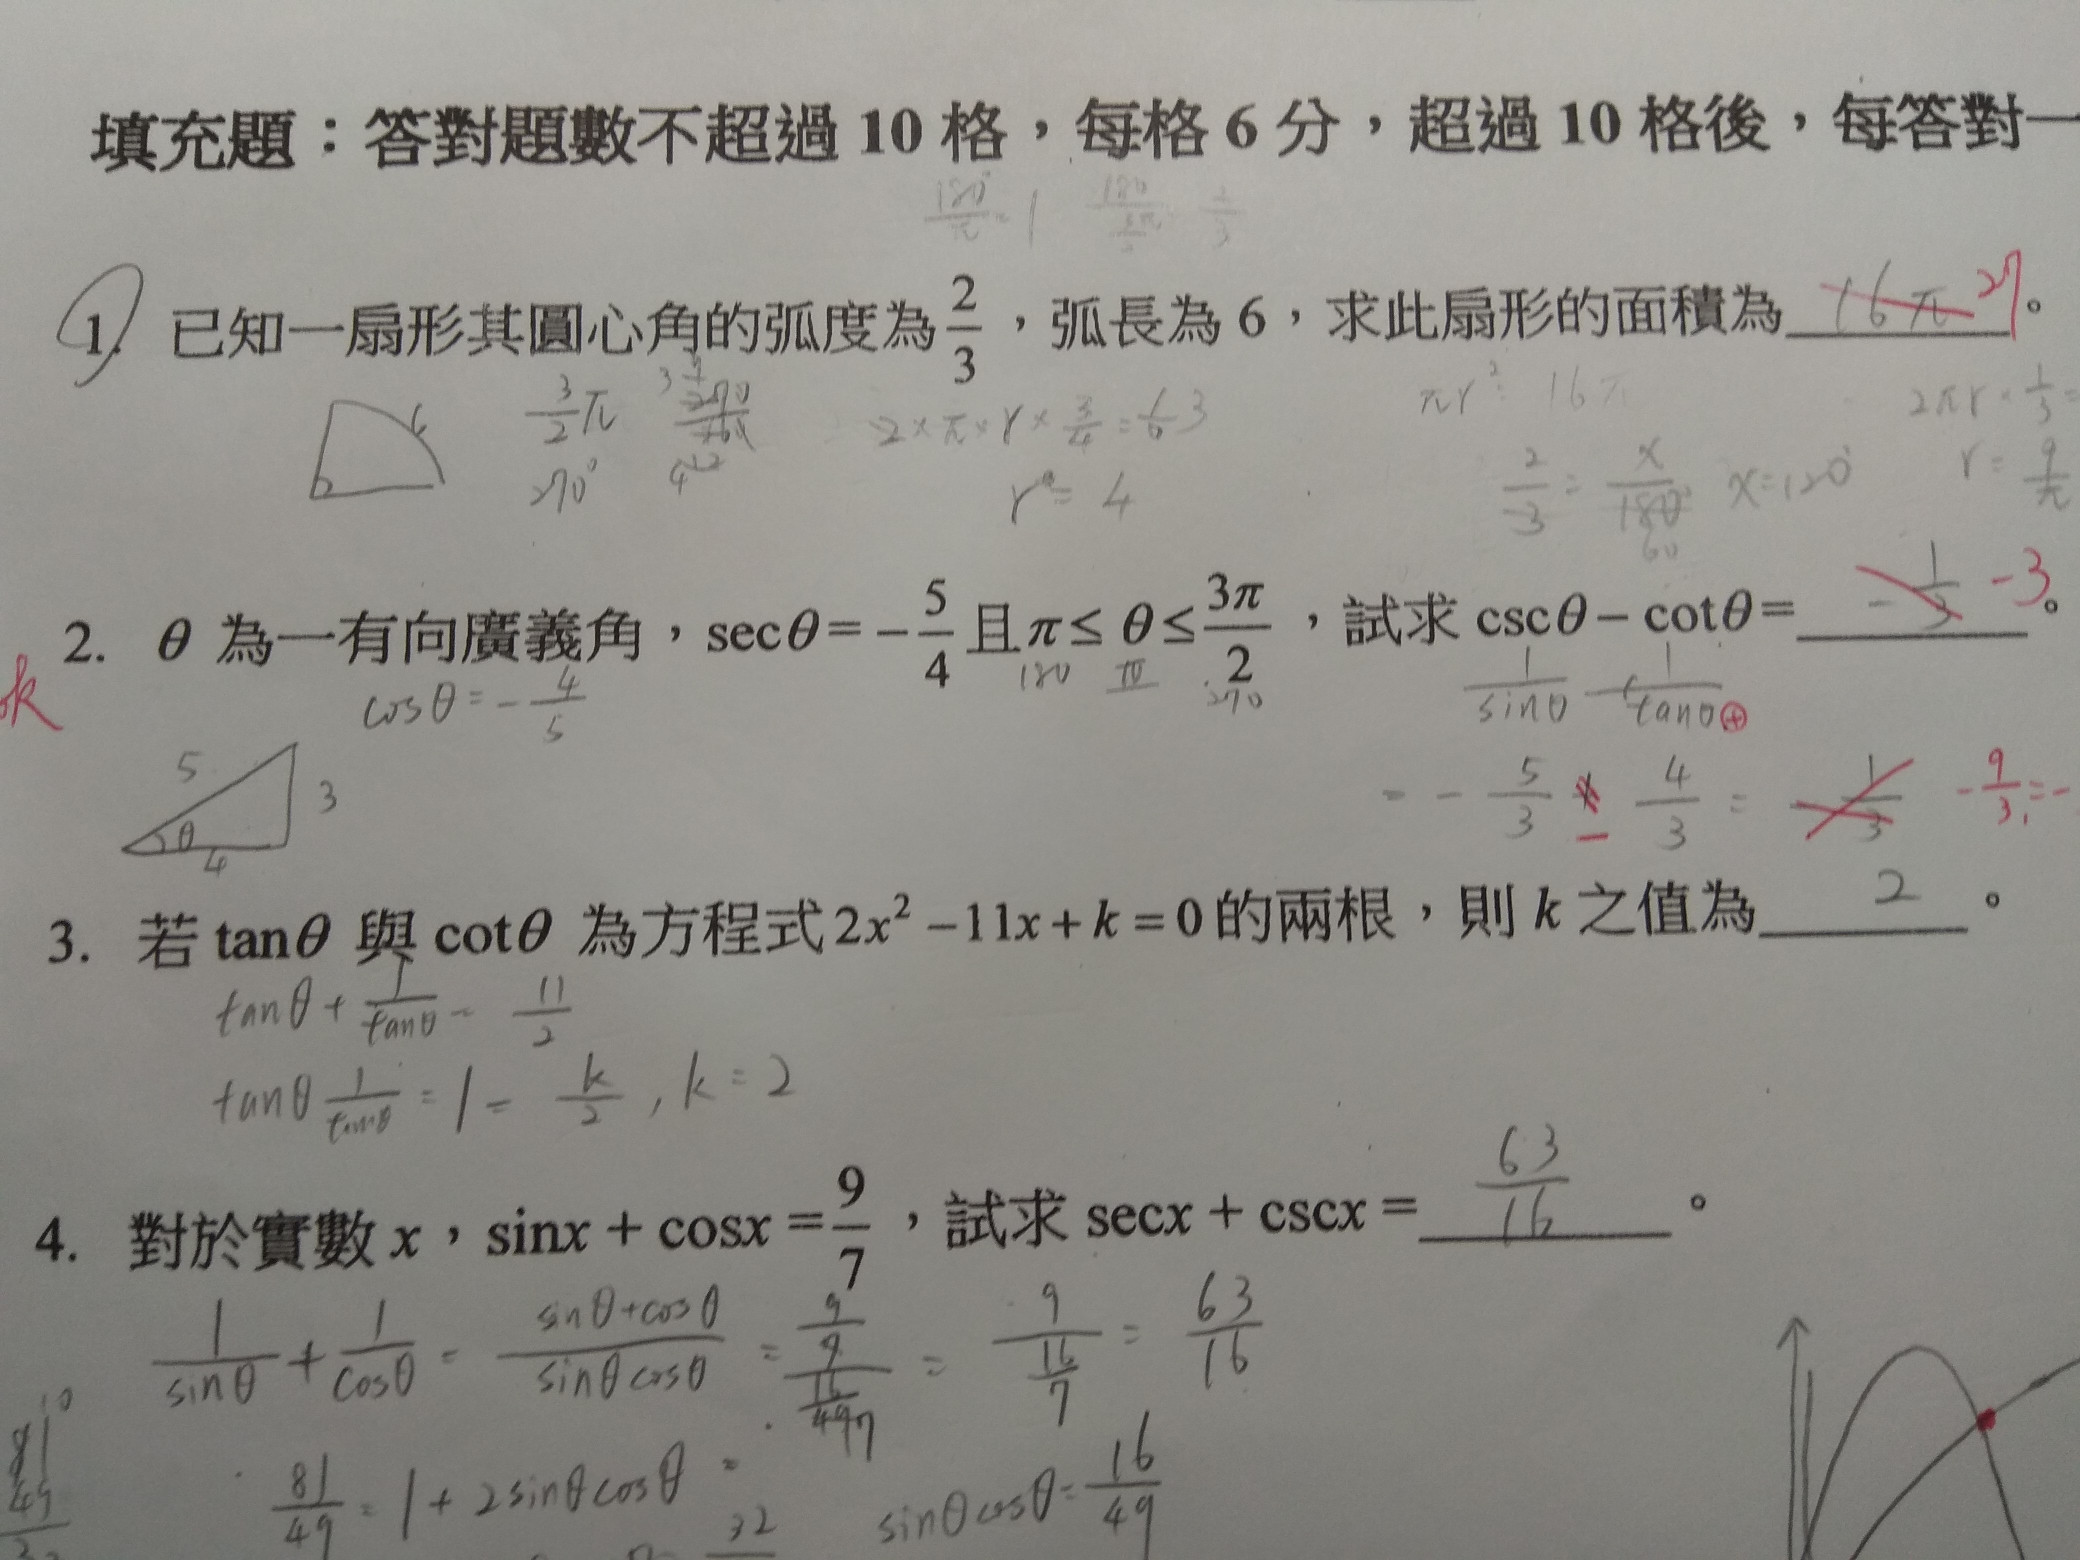 填充題：答對題數不超過 10 格，每格 6 分，超過 10 格後，每答對一
180°/π = 1 180/(3π/2) 2/3
1. 已知一扇形其圓心角的弧度為 2/3，弧長為 6，求此扇形的面積為 16π 27。
6 3/2 π 270° 2×π×r×3/4 = 6 3 πr² = 16π 2πr × 1/3 =
r = 4 2/3 = x/180° 60 x = 120° r = 9/π
2. θ 為一有向廣義角，secθ = −5/4 且 π ≤ θ ≤ 3π/2，試求 cscθ − cotθ = −1/3 −3。
ok cosθ = −4/5 180 270 1/sinθ − 1/tanθ ⊕
5 3 θ 4
= −5/3 − 4/3 = −1/3 −9/3 = −
3. 若 tanθ 與 cotθ 為方程式 2x² − 11x + k = 0 的兩根，則 k 之值為 2。
tanθ + 1/tanθ = 11/2
tanθ 1/tanθ = 1 = k/2, k = 2
4. 對於實數 x，sinx + cosx = 9/7，試求 secx + cscx = 63/16。
1/sinθ + 1/cosθ = (sinθ+cosθ)/(sinθcosθ) = (9/7)/(16/49) 7 = 9/(16/7) = 63/16
81/49 = 1 + 2sinθcosθ sinθcosθ = 16/49
32